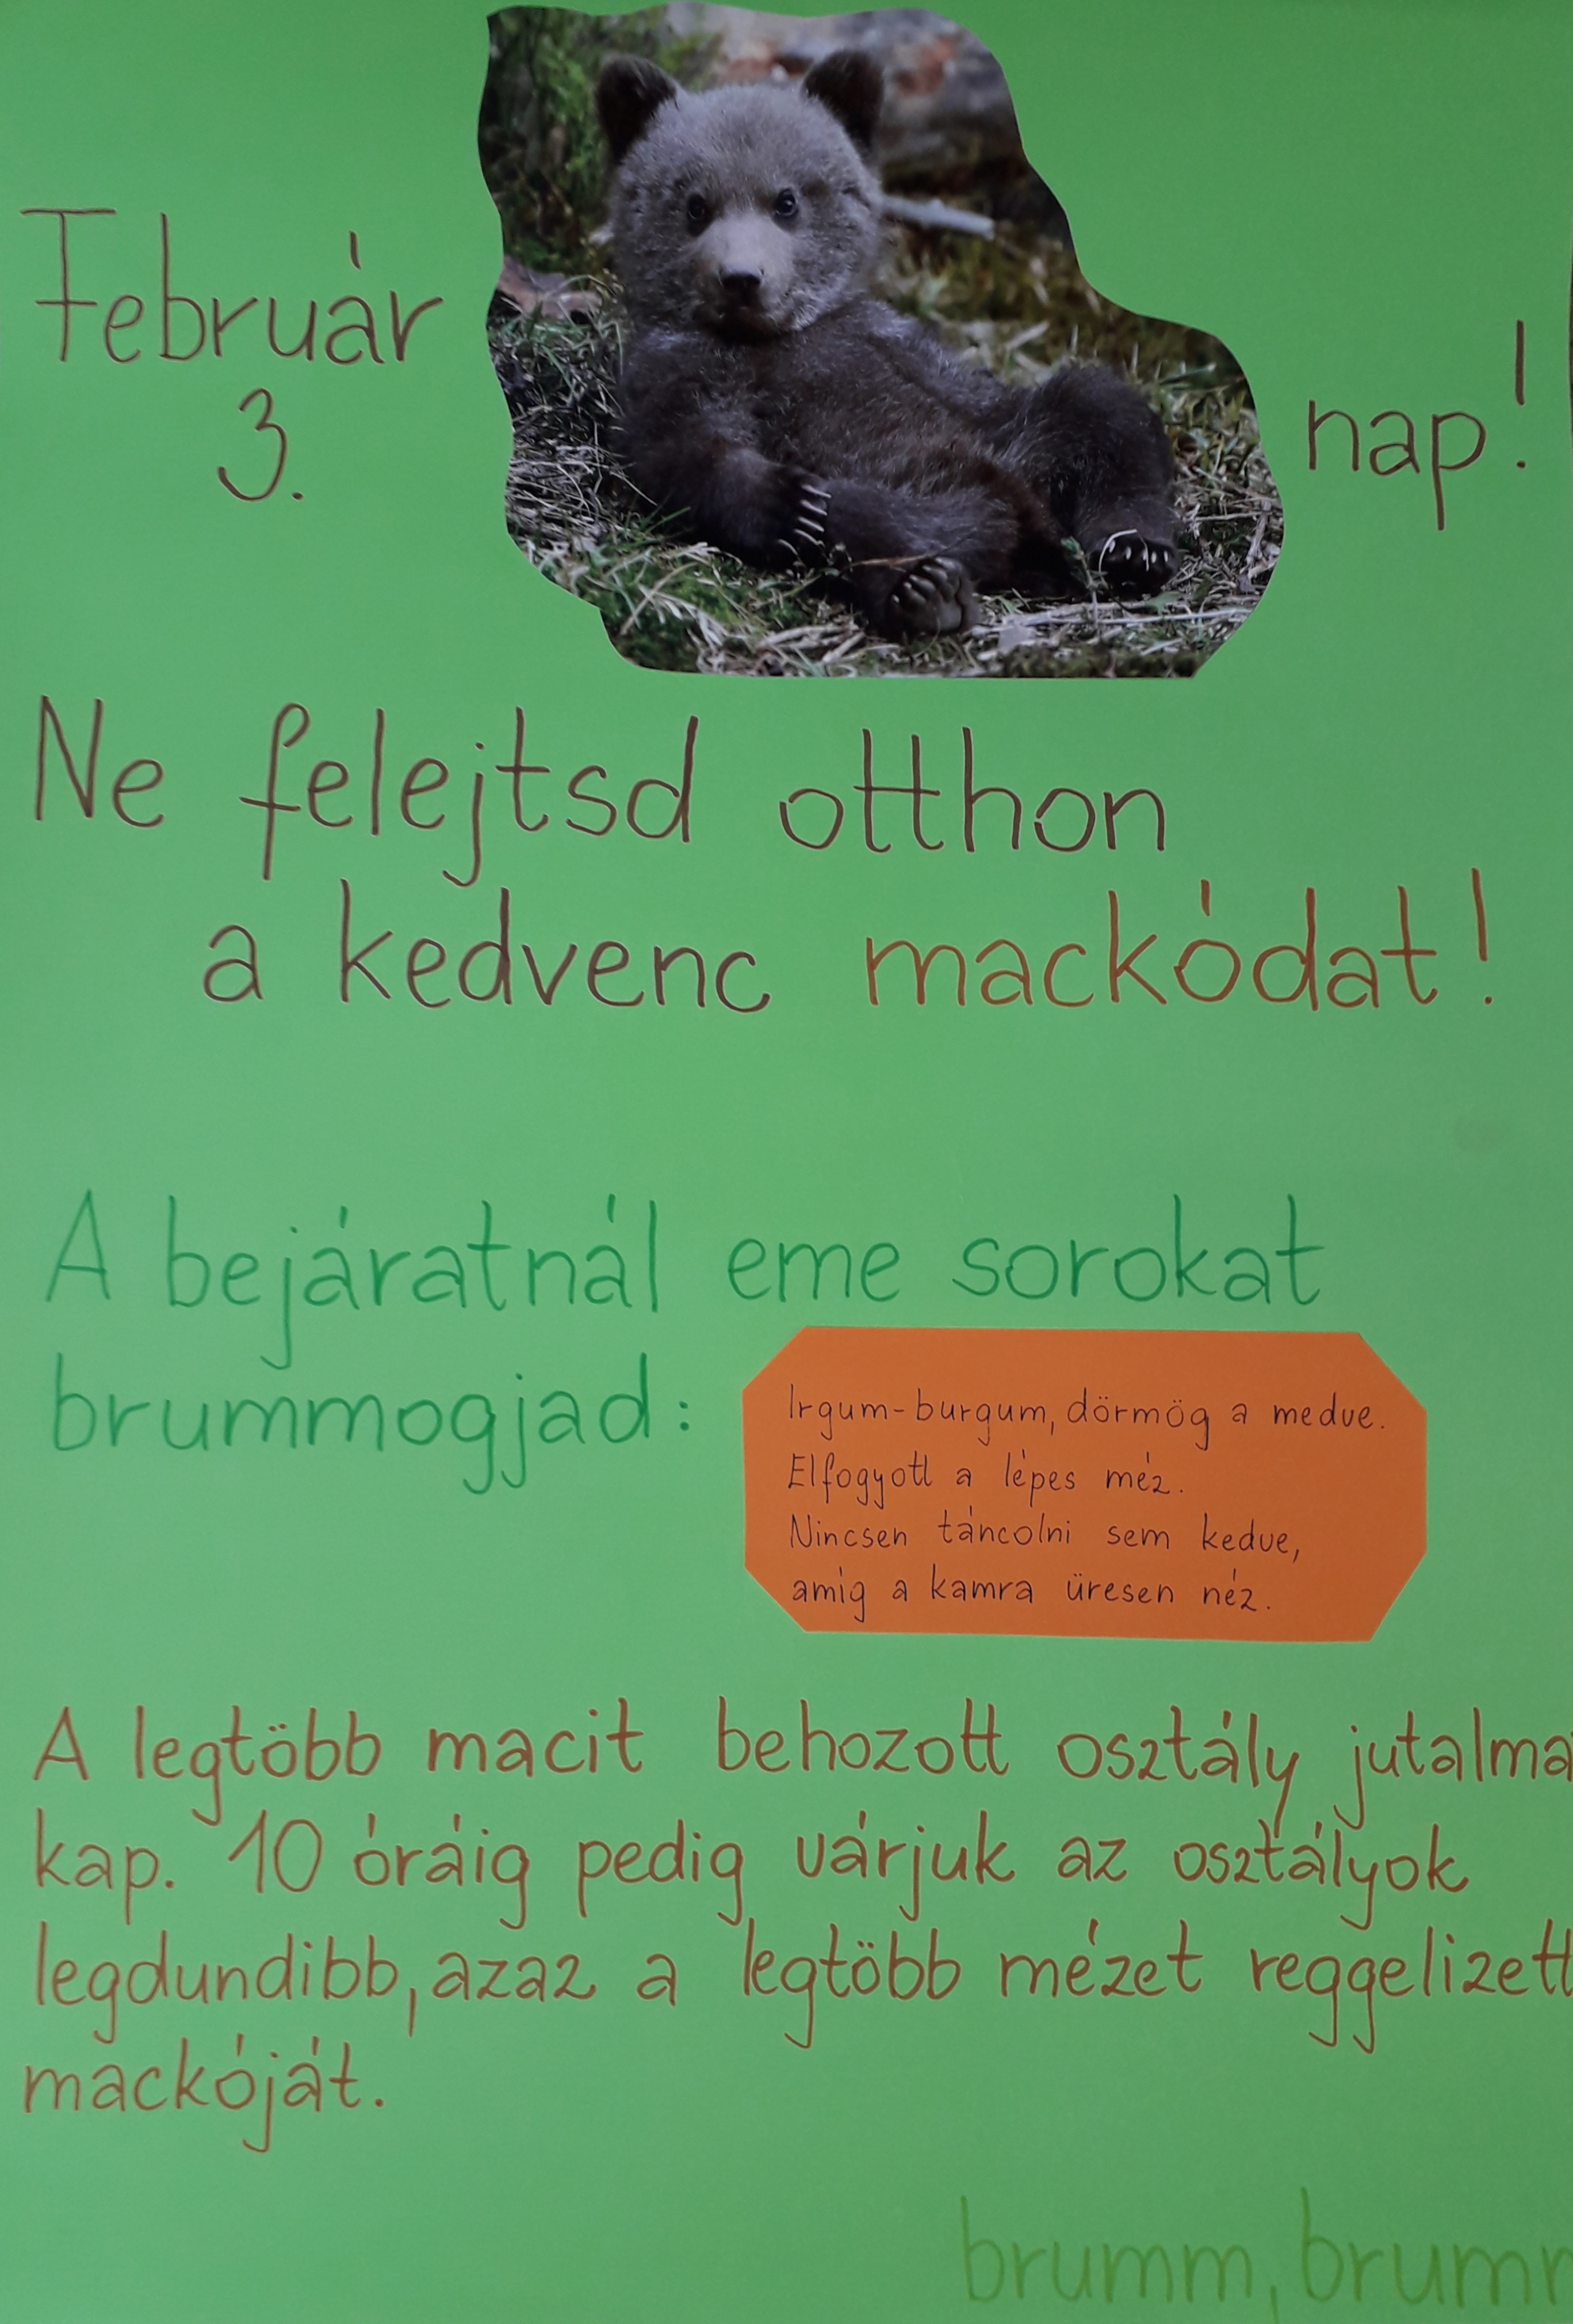 Február
3.
nap!
Ne felejtsd otthon
a kedvenc mackódat!
A bejáratnál eme sorokat
brummogjad:
Irgum-burgum, dörmög a medve.
Elfogyott a lépes méz.
Nincsen táncolni sem kedve,
amíg a kamra üresen néz.
A legtöbb macit behozott osztály jutalma
kap. 10 óráig pedig várjuk az osztályok
legdundibb, azaz a legtöbb mézet reggelizett
mackóját.
brumm, brum